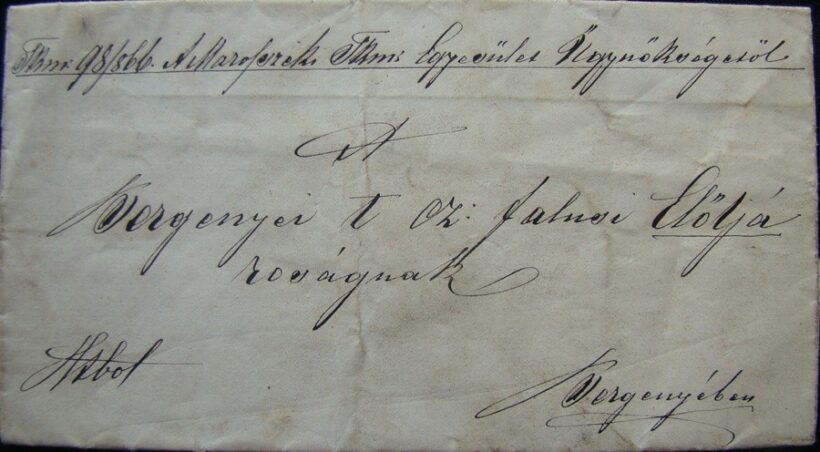 Tkmi 98/866. A Marosszéki Tkmi Egyesület Ügynökségesöl
A
Vergenyei t cz: falusi Előljá
roságnak
Hxbol
Vergenyében